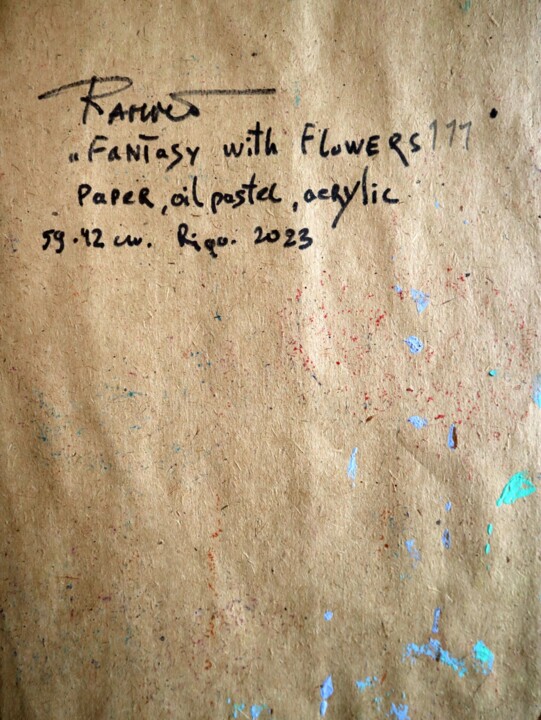 „Fantasy with Flowers 111
Paper, oil pastel, acrylic
59.42 cm. Riga. 2023